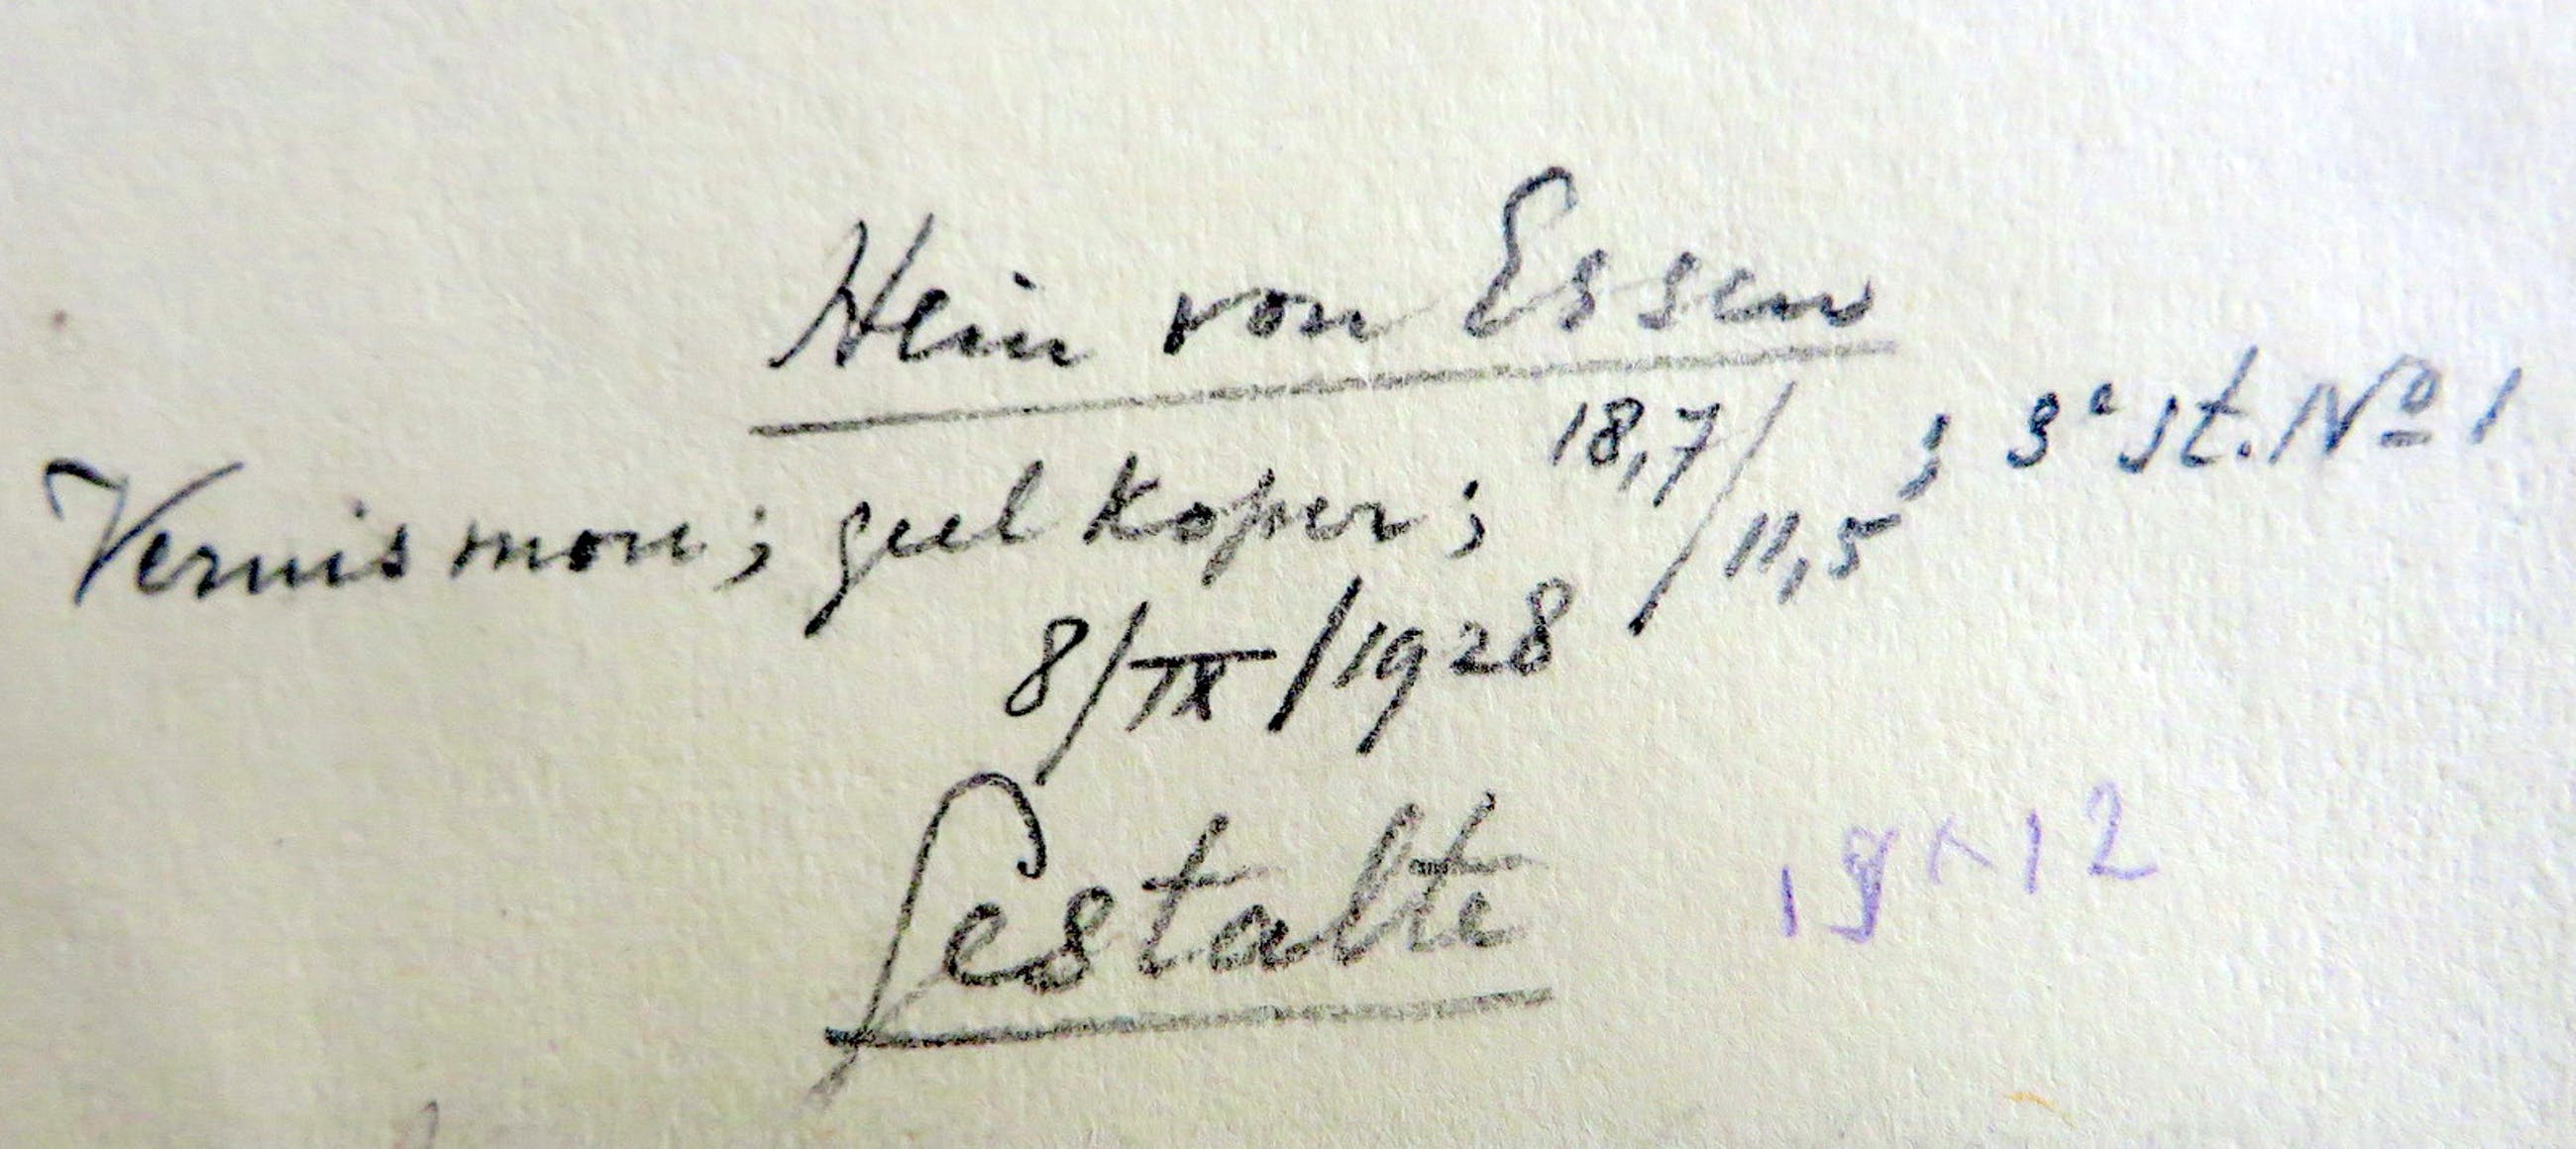 Hein von Essen
Vernis mou; geel koper; 18,7/11,5; 3e st. No 1
8/IX/1928
Gestalte
19 × 12